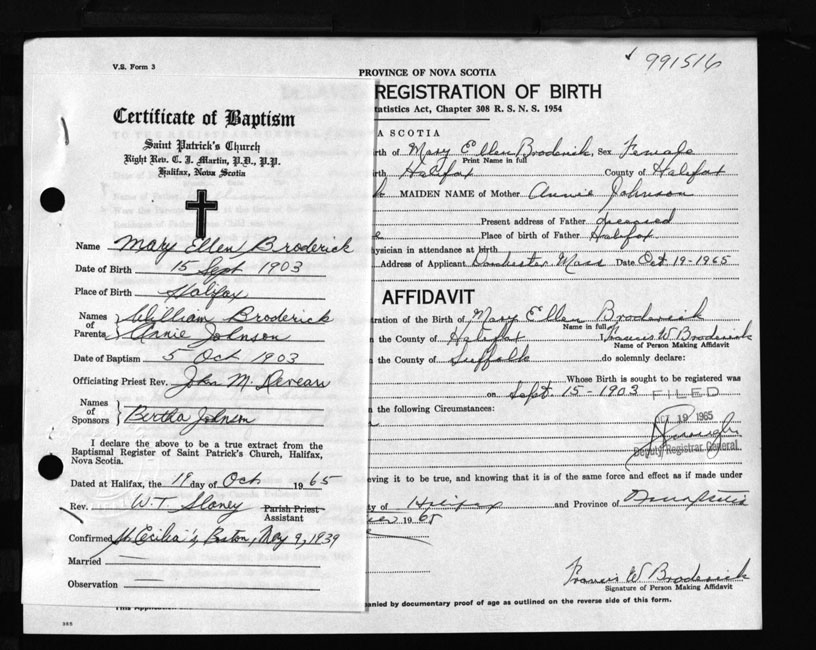 V.S. Form 3
991516
Certificate of Baptism
Saint Patrick's Church
Right Rev. C. J. Martin, P.D., P.P.
Halifax, Nova Scotia
Name Mary Ellen Broderick
Date of Birth 15 Sept 1903
Place of Birth Halifax
Names of Parents William Broderick
Annie Johnson
Date of Baptism 5 Oct 1903
Officiating Priest Rev. John M.
Names of Sponsors Bertha Johnson
I declare the above to be a true extract from the
Baptismal Register of Saint Patrick's Church, Halifax,
Nova Scotia.
Dated at Halifax, the 19 day of Oct 1965
Rev. W. T. Sloney Parish Priest
Assistant
Confirmed St. Cecilia's, Boston, May 9, 1939
Married —
Observation —
385
PROVINCE OF NOVA SCOTIA
REGISTRATION OF BIRTH
tatistics Act, Chapter 308 R. S. N. S. 1954
A SCOTIA
irth of Mary Ellen Broderick Sex Female
Print Name in full
irth Halifax County of Halifax
MAIDEN NAME of Mother Annie Johnson
Present address of Father Deceased
Place of birth of Father Halifax
ysician in attendance at birth
Address of Applicant Dorchester Mass Date Oct 19-1965
AFFIDAVIT
tration of the Birth of Mary Ellen Broderick
Name in full
n the County of Halifax I, Francis W Broderick
Name of Person Making Affidavit
n the County of Suffolk do solemnly declare:
Whose Birth is sought to be registered was
on Sept. 15 - 1903
FILED
n the following Circumstances:
OCT 19 1965
Deputy Registrar General
ieving it to be true, and knowing that it is of the same force and effect as if made under
ty of Halifax and Province of Nova Scotia
1965
Francis W Broderick
Signature of Person Making Affidavit
This Application
anied by documentary proof of age as outlined on the reverse side of this form.